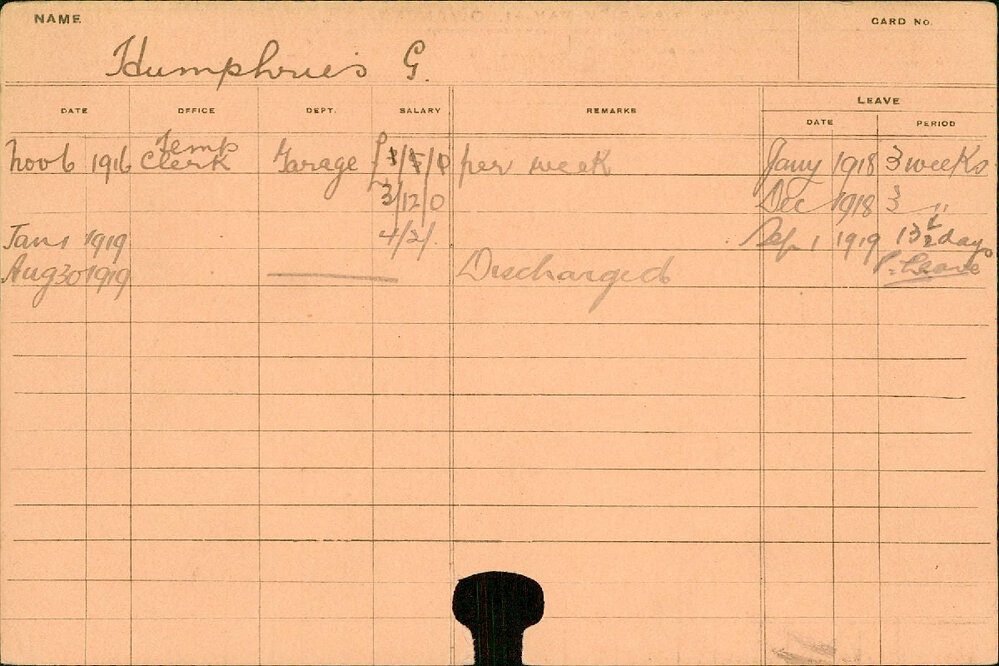 NAME
CARD No.
Humphries G.
DATE OFFICE DEPT. SALARY REMARKS LEAVE
DATE PERIOD
Nov 6 1916 Temp Clerk Garage per week Jany 1918 3 weeks
3/12/0 Dec 1918 3 "
Jan 1 1919 4/2/. Sep 1 1919 13 1/2 days
Aug 30 1919 Discharged P. Leave